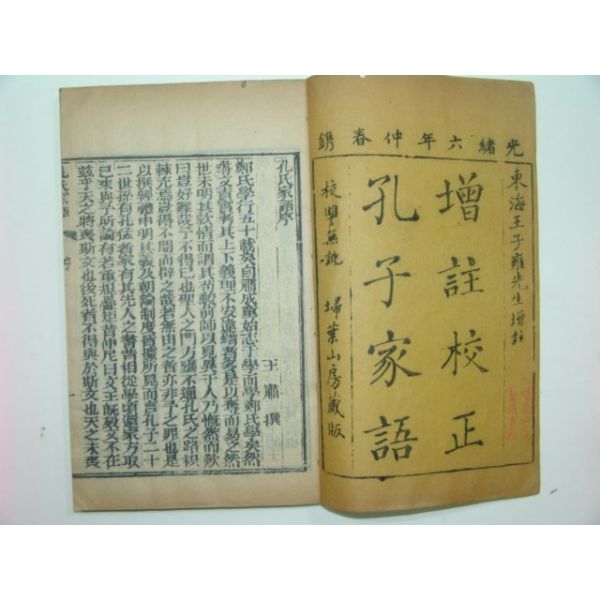 光緒六年仲春鐫
東海王子雍先生增註
增註校正
孔子家語
校讐無訛　埽葉山房藏版
孔氏家語序
王肅撰
鄭氏學行五十載矣自肅成童始志于學而學鄭氏學矣然
尋文責實考其上下義理不安違錯者多是以奪而易之然
世未明其款情而謂其苟駮前師以見異于人乃慨然而歎
曰豈好難哉予不得已也聖人之門方壅不通孔氏之路枳
棘充焉豈得不開而辟之哉若無由之者亦非予之罪也是
以撰經禮申明其義及朝論制度皆據所見而言孔子二十
二世孫有孔猛者家有其先人之書昔相從學頃還家方取
已來與予所論有若重規疊矩昔仲尼曰文王旣歿文不在
茲乎天之將喪斯文也後死者不得與於斯文也天之未喪